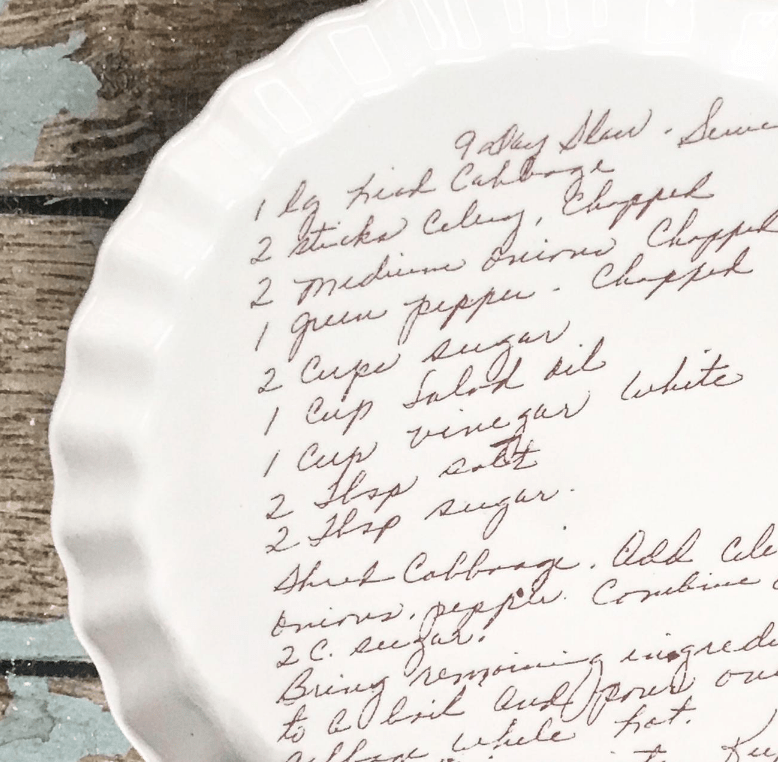 9 Day Slaw - Serve
1 lg head Cabbage
2 sticks Celery, Chopped
2 medium onions Chopped
1 green pepper - Chopped
2 Cups sugar
1 Cup Salad oil
1 Cup vinegar white
2 Tbsp salt
2 Tbsp sugar.
Shred Cabbage. Add Cele
onions, pepper. Combine
2 C. sugar.
Bring remaining ingredi
to a boil and pour ov
while hot.